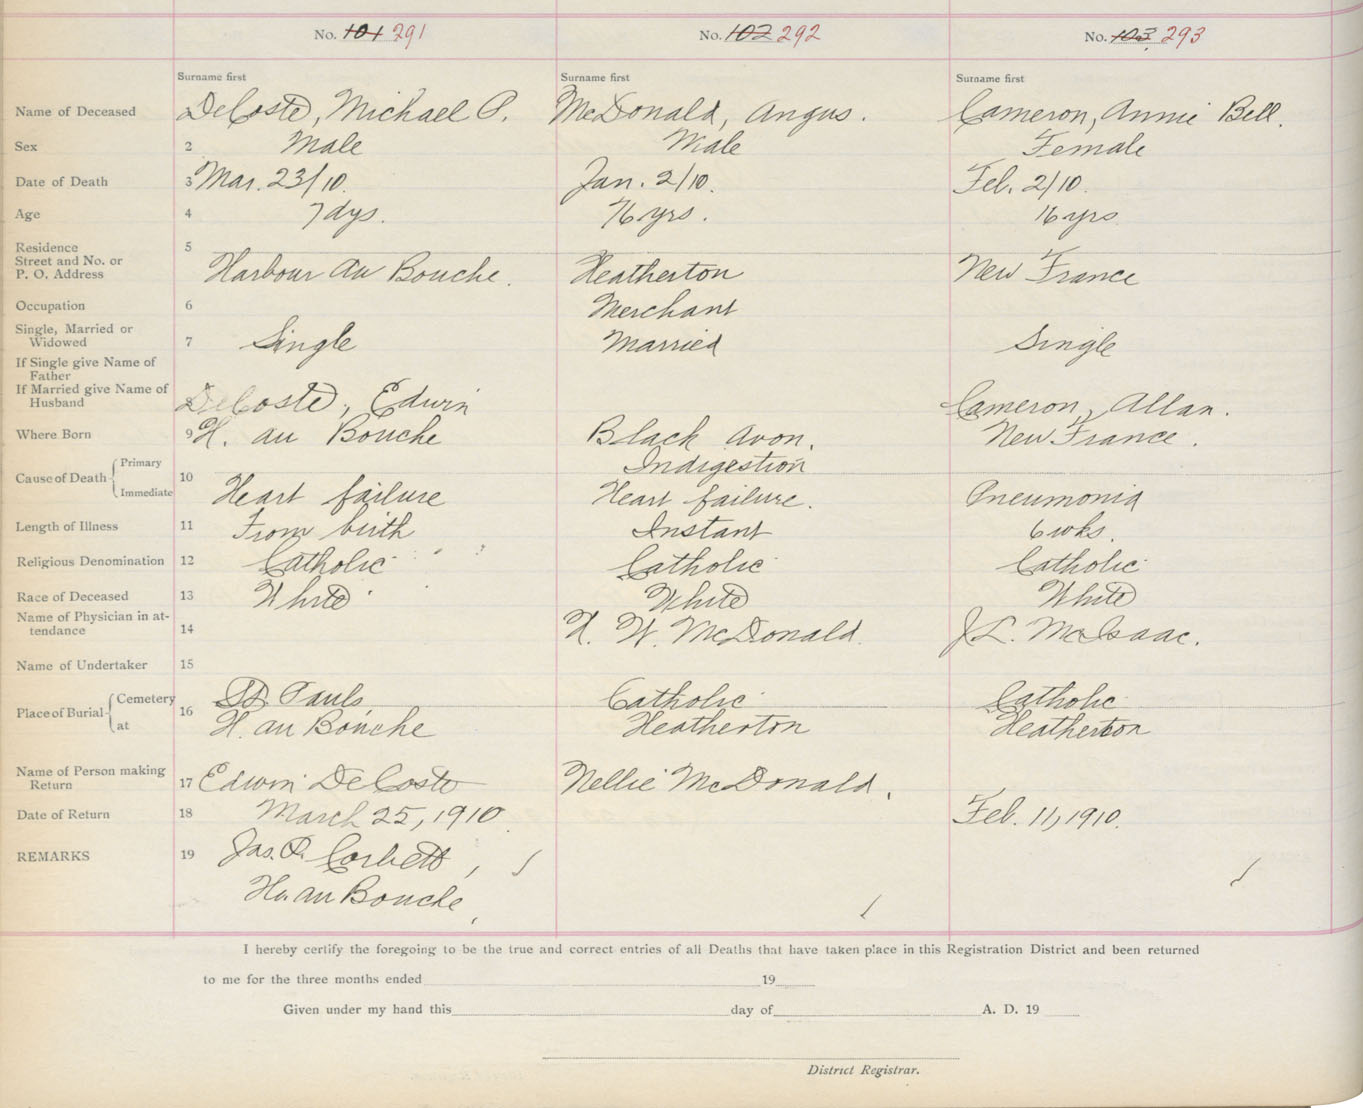 No. 101 291 No. 102 292 No. 103 293
Surname first Surname first Surname first
Name of Deceased 1 DeCoste, Michael P. McDonald, Angus. Cameron, Annie Bell.
Sex 2 Male Male Female
Date of Death 3 Mar. 23/10. Jan. 2/10. Feb. 2/10.
Age 4 7 dys. 76 yrs. 16 yrs
Residence 5
Street and No. or
P. O. Address Harbour Au Bouche. Heatherton New France
Occupation 6 Merchant
Single, Married or
Widowed 7 Single Married Single
If Single give Name of
Father
If Married give Name of
Husband 8 DeCoste, Edwin Cameron, Allan.
Where Born 9 H. au Bouche Black Avon. New France.
Cause of Death Primary Indigestion
10
Immediate Heart failure Heart failure. Pneumonia
Length of Illness 11 From birth Instant 6 wks.
Religious Denomination 12 Catholic Catholic Catholic
Race of Deceased 13 White White White
Name of Physician in at-
tendance 14 W. McDonald. J.L. McIsaac.
Name of Undertaker 15
Place of Burial Cemetery St. Pauls Catholic Catholic
16
at H. au Bouche Heatherton Heatherton
Name of Person making
Return 17 Edwin DeCoste Nellie McDonald.
Date of Return 18 March 25, 1910. Feb. 11, 1910.
REMARKS 19 Jas. P. Corbett,
Hr. au Bouche,
I hereby certify the foregoing to be the true and correct entries of all Deaths that have taken place in this Registration District and been returned
to me for the three months ended 19
Given under my hand this day of A. D. 19
District Registrar.